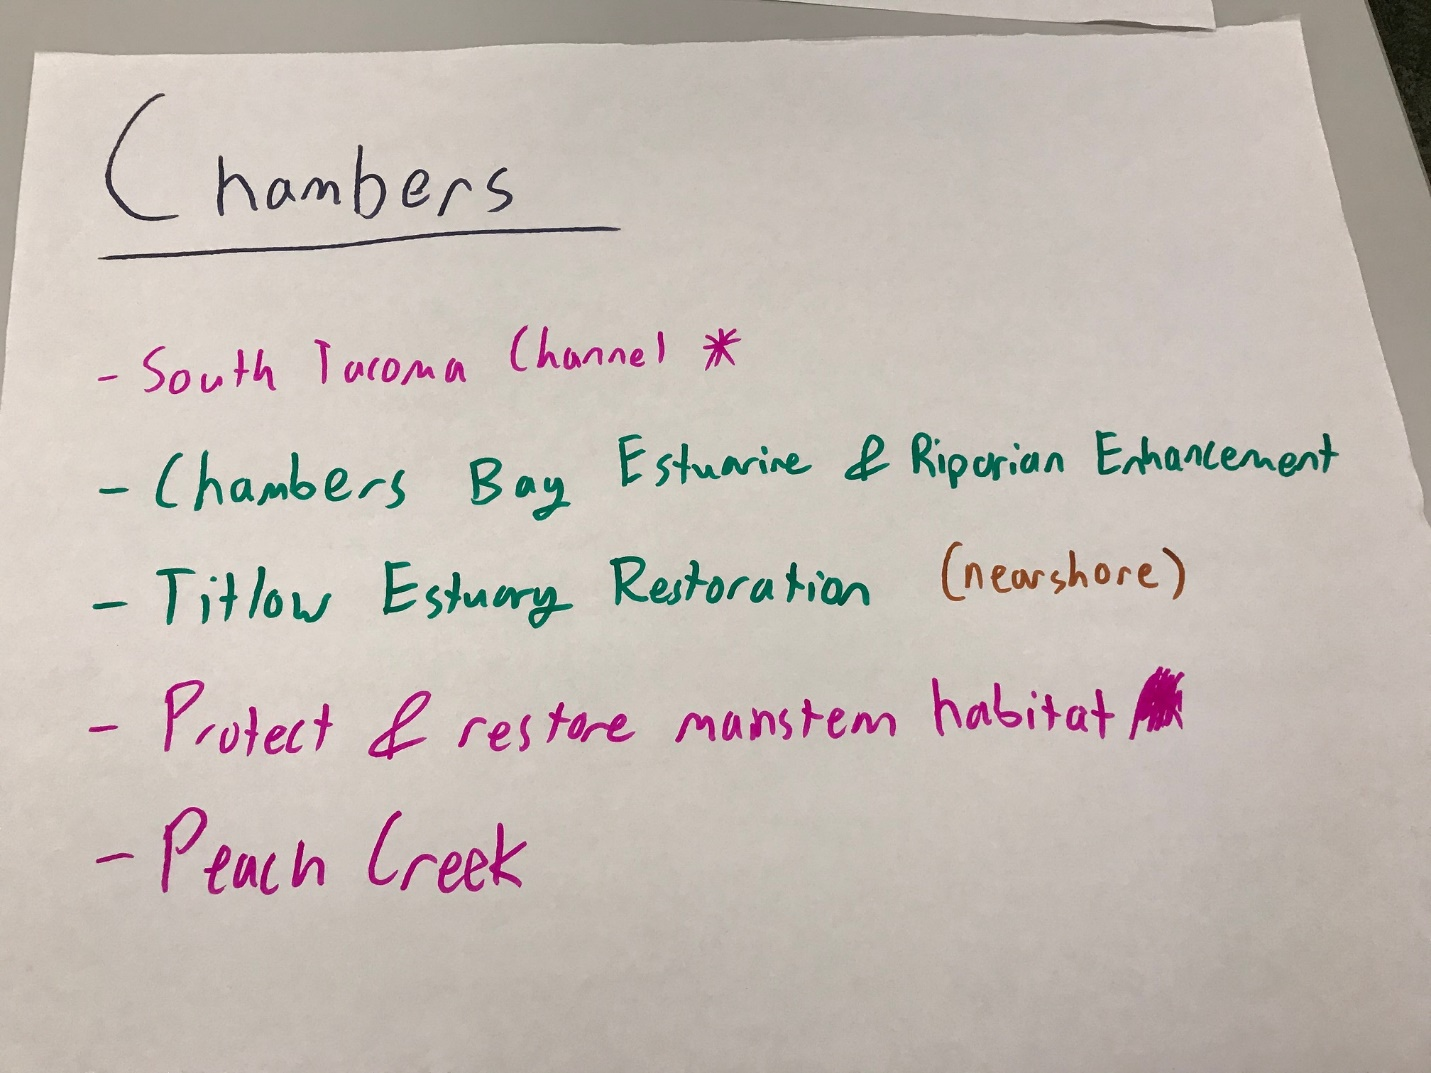 Chambers
- South Tacoma Channel *
- Chambers Bay Estuarine & Riparian Enhancement
- Titlow Estuary Restoration (nearshore)
- Protect & restore mainstem habitat
- Peach Creek